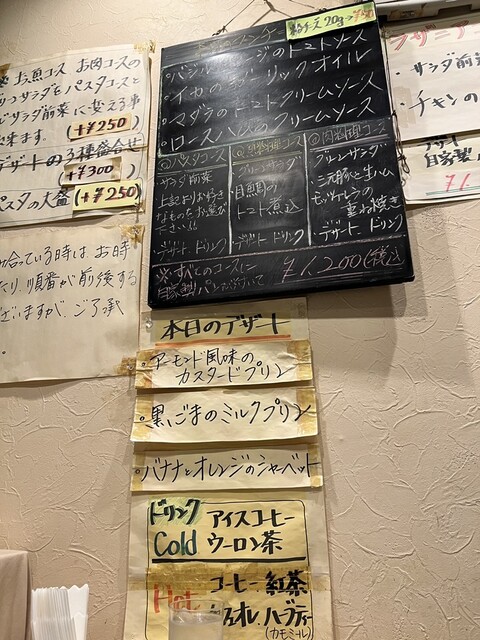 ※ お魚コース お肉コースの
サラダをパスタコースと
サラダ前菜に変える事
来ます。 (+¥250)
デザートの3種盛合せ
(+¥300)
パスタの大盛 (+¥250)
合っている時は、お時
り、順番が前後する
ざいますが、ご了承
。
粉チーズ 20g→¥50
・バジルソーセージのトマトソース
・イカのガーリックオイル
・マダラのトマトクリームソース
・ロースハムのクリームソース
パスタコース
サラダ前菜
上記よりお好き
なものをお選び
下さい!!
・デザート ドリンク
魚料理コース
グリーンサラダ
目鯛の
トマト煮込
・デザート ドリンク
肉料理コース
グリーンサラダ
三元豚と生ハム
モッツァレラの
重ね焼き
・デザート ドリンク
※すべてのコースに
自家製パンがついて
¥1,200(税込)
ラザニア
・サラダ前菜
・チキンの
デザート
自家製
本日のデザート
・アーモンド風味の
カスタードプリン
・黒ごまのミルクプリン
・バナナとオレンジのシャーベット
ドリンク
Cold
アイスコーヒー
ウーロン茶
Hot
コーヒー. 紅茶
カフェオレ. ハーブティー
(カモミール)